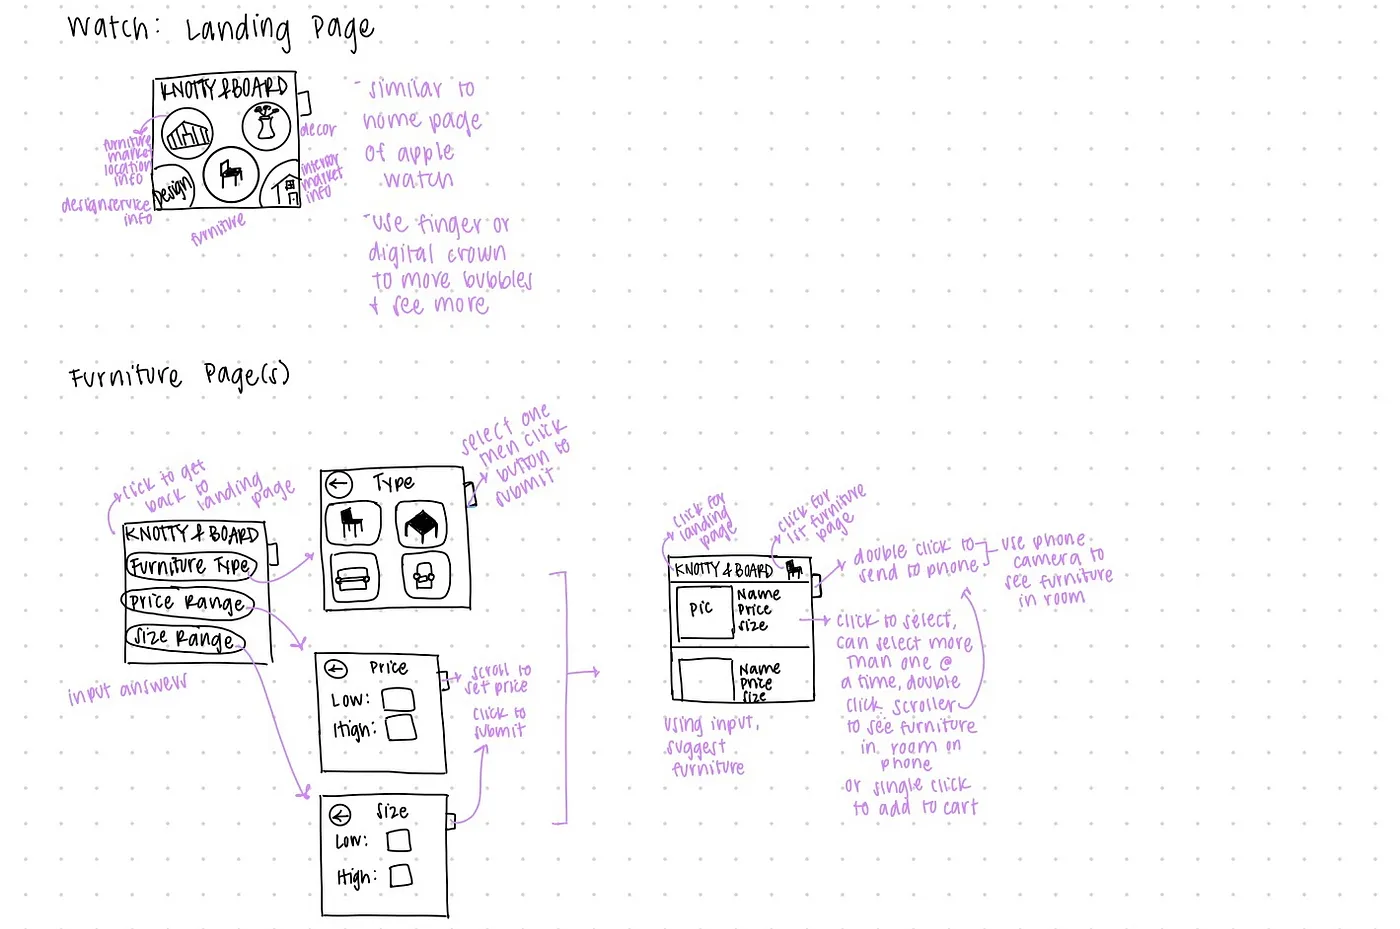 Watch: Landing Page
KNOTTY & BOARD
furniture
market
location
info
decor
Design
design service
info
furniture
interior
market
info
- similar to
home page
of apple
watch
- use finger or
digital crown
to move bubbles
& see more
Furniture Page(s)
click to get
back to
landing
page
KNOTTY & BOARD
Furniture Type
Price Range
Size Range
input answers
Type
select one
then click
button to
submit
Price
Low:
High:
scroll to
set price
click to
submit
Size
Low:
High:
click for
landing
page
click for
1st furniture
page
KNOTTY & BOARD
Pic
Name
Price
Size
Name
Price
Size
using input,
suggest
furniture
double click to
send to phone
use phone
camera to
see furniture
in room
click to select,
can select more
than one @
a time, double
click scroller
to see furniture
in room on
phone
or single click
to add to cart